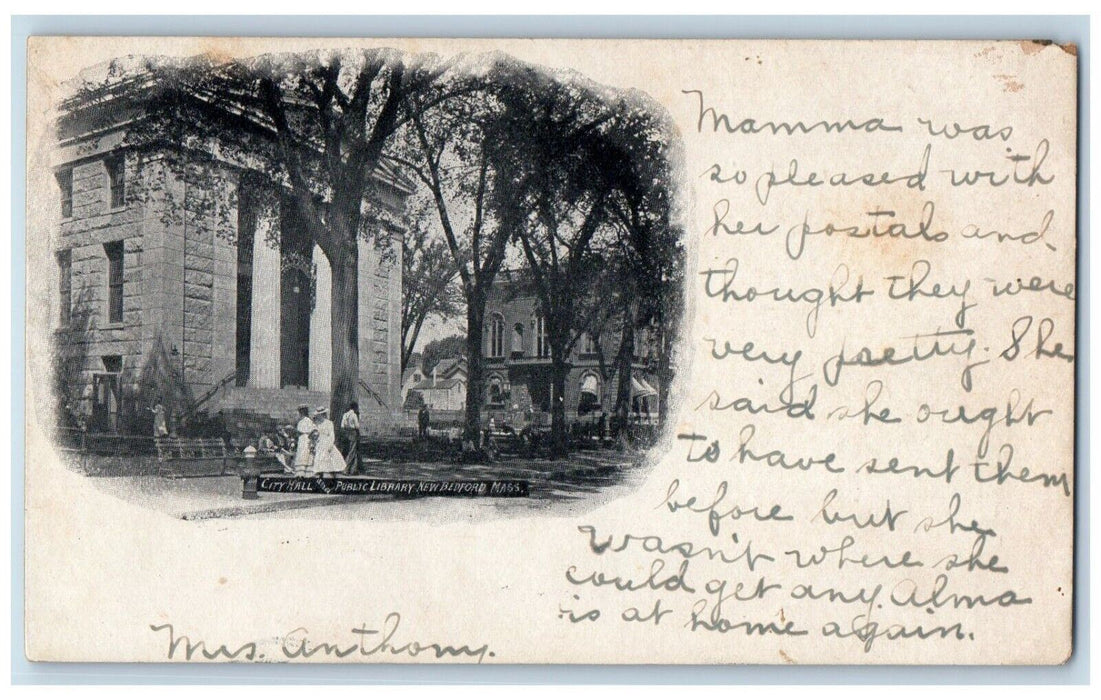 Mamma was
so pleased with
her postals and
thought they were
very pretty. She
said she ought
to have sent them
before but she
wasn't where she
could get any. Alma
is at home again.
CITY HALL AND PUBLIC LIBRARY. NEW BEDFORD MASS.
Mrs. Anthony.